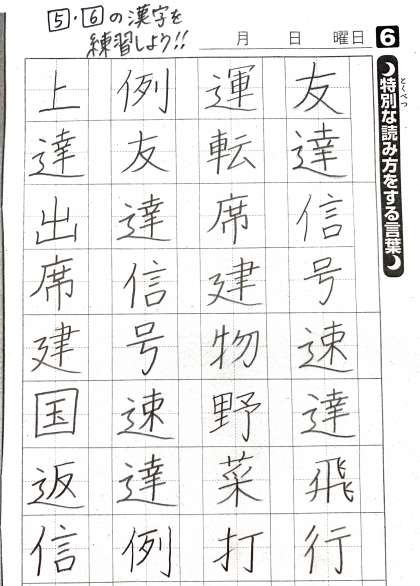 5・6の漢字を
練習しよう!!
月 日 曜日
6
特別な読み方をする言葉
とくべつ
友達信号速達飛行
運転席建物野菜打
例友達信号速達例
上達出席建国返信